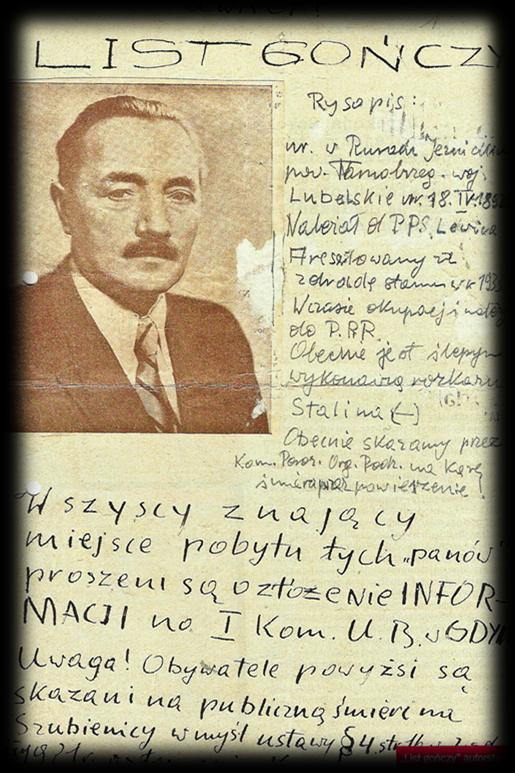 LIST GOŃCZY
Rysopis:
ur. w Rurach
pow. Tarnobrzeg. woj.
Lubelskie ur. 18. IV. 189
Należał d PPS. Lewica
Aresztowany za
zdradę stanu w r 193
W czasie okupacji należ
do P.P.R.
Obecnie jest ślepym
wykonawcą rozkazu
Stalina (-)
Obecnie skazany przez
Kom. Poror. Org. Podz. na karę
śmierci przez powieszenie!
Wszyscy znający
miejsce pobytu tych „panów"
proszeni są o złożenie INFOR-
MACJI na I Kom. U.B. w GDYN
Uwaga! Obywatele powyżsi są
skazani na publiczną śmierć na
Szubienicy w myśl ustawy § 4.
"List gończy" autors